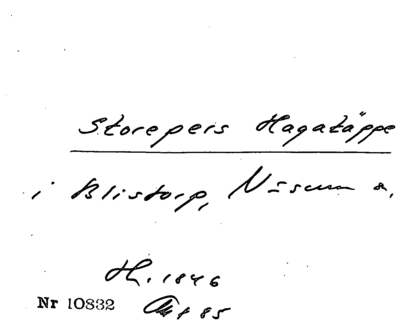 Storepers Hagatäppe
i Blistorp, Näsum s,
H. 1846
Nr 10832 Akt 85